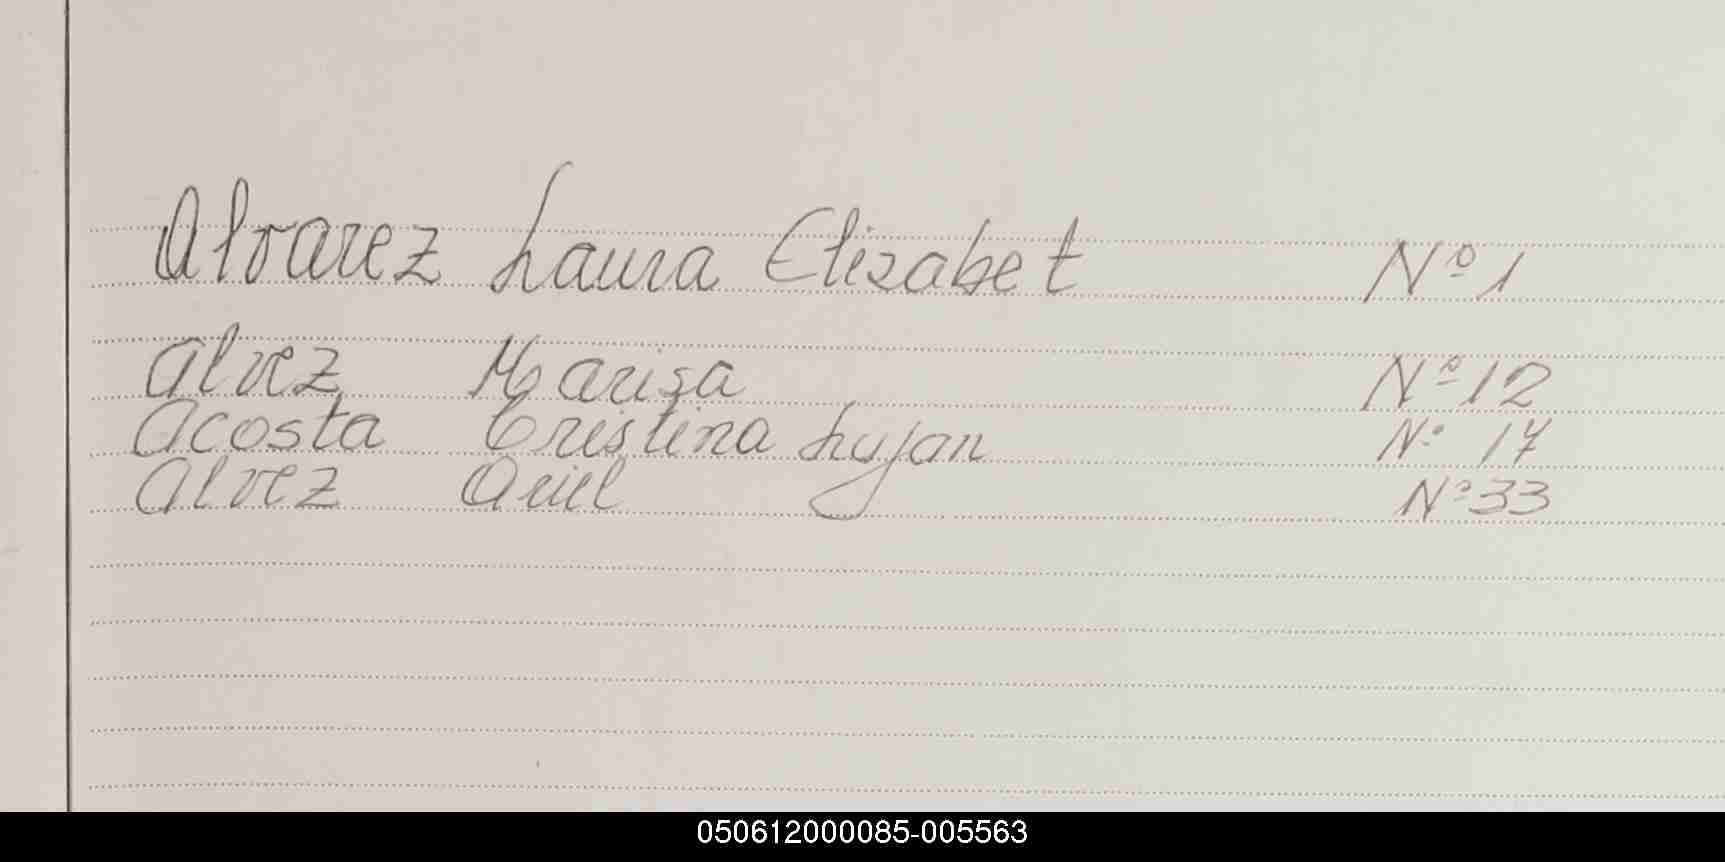 Alvarez Laura Elizabet Nº 1
Alvez Marisa Nº 12
Acosta Cristina Lujan Nº 17
Alvez Ariel Nº 33
050612000085-005563